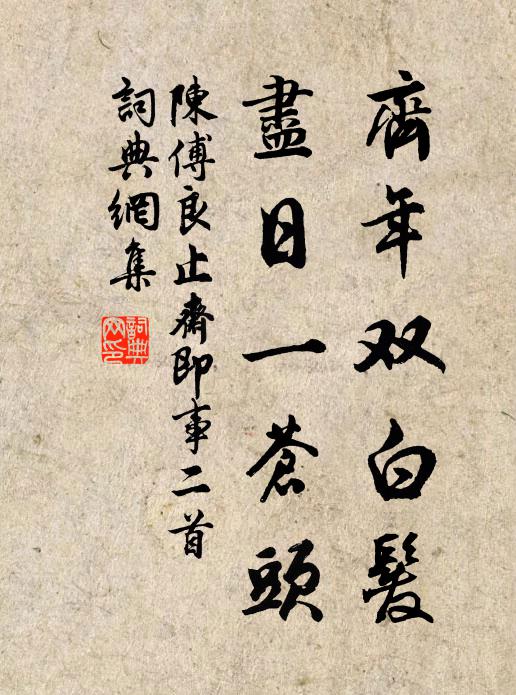 齊年双白髮
盡日一蒼頭
陳傅良止齋即事二首
詞典網集
詞典网印